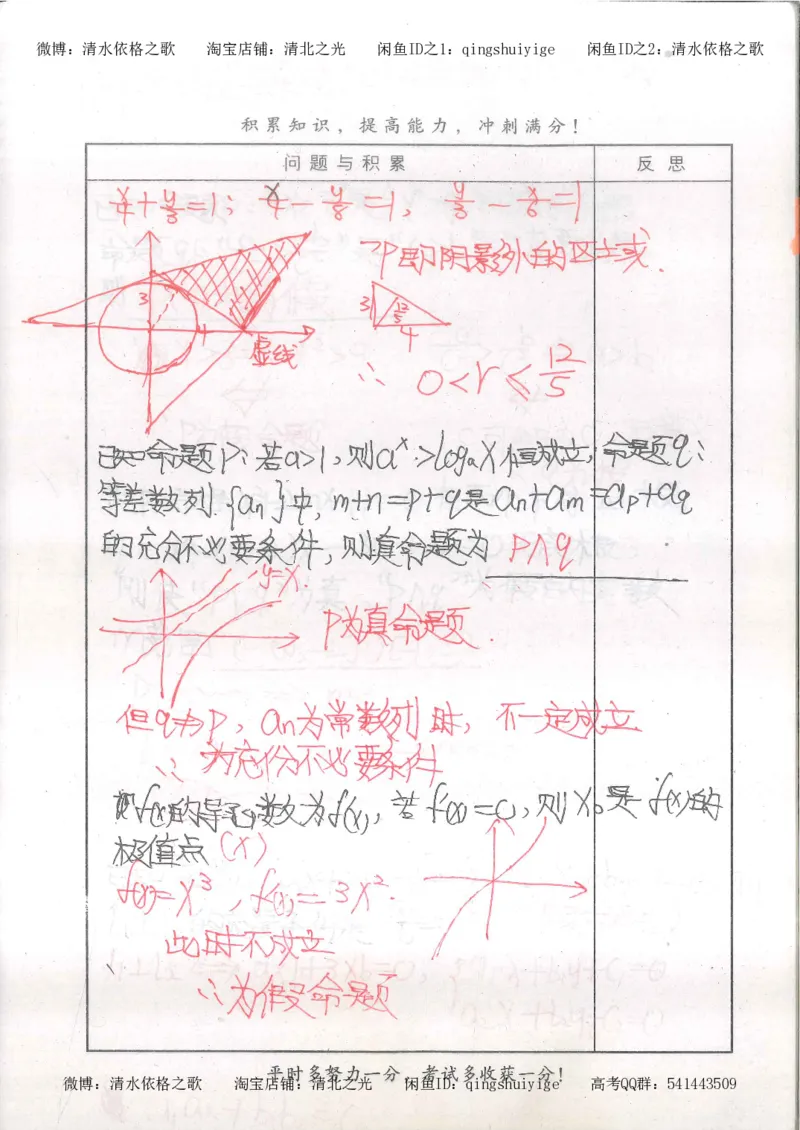 微博：清水依格之歌 淘宝店铺：清北之光 闲鱼ID之1：qingshuiyige 闲鱼ID之2：清水依格之歌
积累知识，提高能力，冲刺满分！
问题与积累 反思
x/4+y/3=1; x/4-y/8=1, y/3-x/8=1
¬P即阴影外的区域.
3 4 虚线
3 12/5 4
∴ 0<r≤12/5
已知命题p：若a>1，则a^x>log_a x恒成立；命题q：
等差数列{an}中，m+n=p+q是an+am=ap+aq
的充分不必要条件，则真命题为 p∧q
y=x.
P为真命题.
但q⇏p，an为常数列时，不一定成立
∴ 为充份不必要条件
f(x)的导函数为f'(x)，若f'(x)=0，则x₀是f(x)的
极值点 (×)
f(x)=x³，f'(x)=3x².
此时不成立
∴为假命题
平时多努力一分，考试多收获一分！
微博：清水依格之歌 淘宝店铺：清北之光 闲鱼ID：qingshuiyige 高考QQ群：541443509